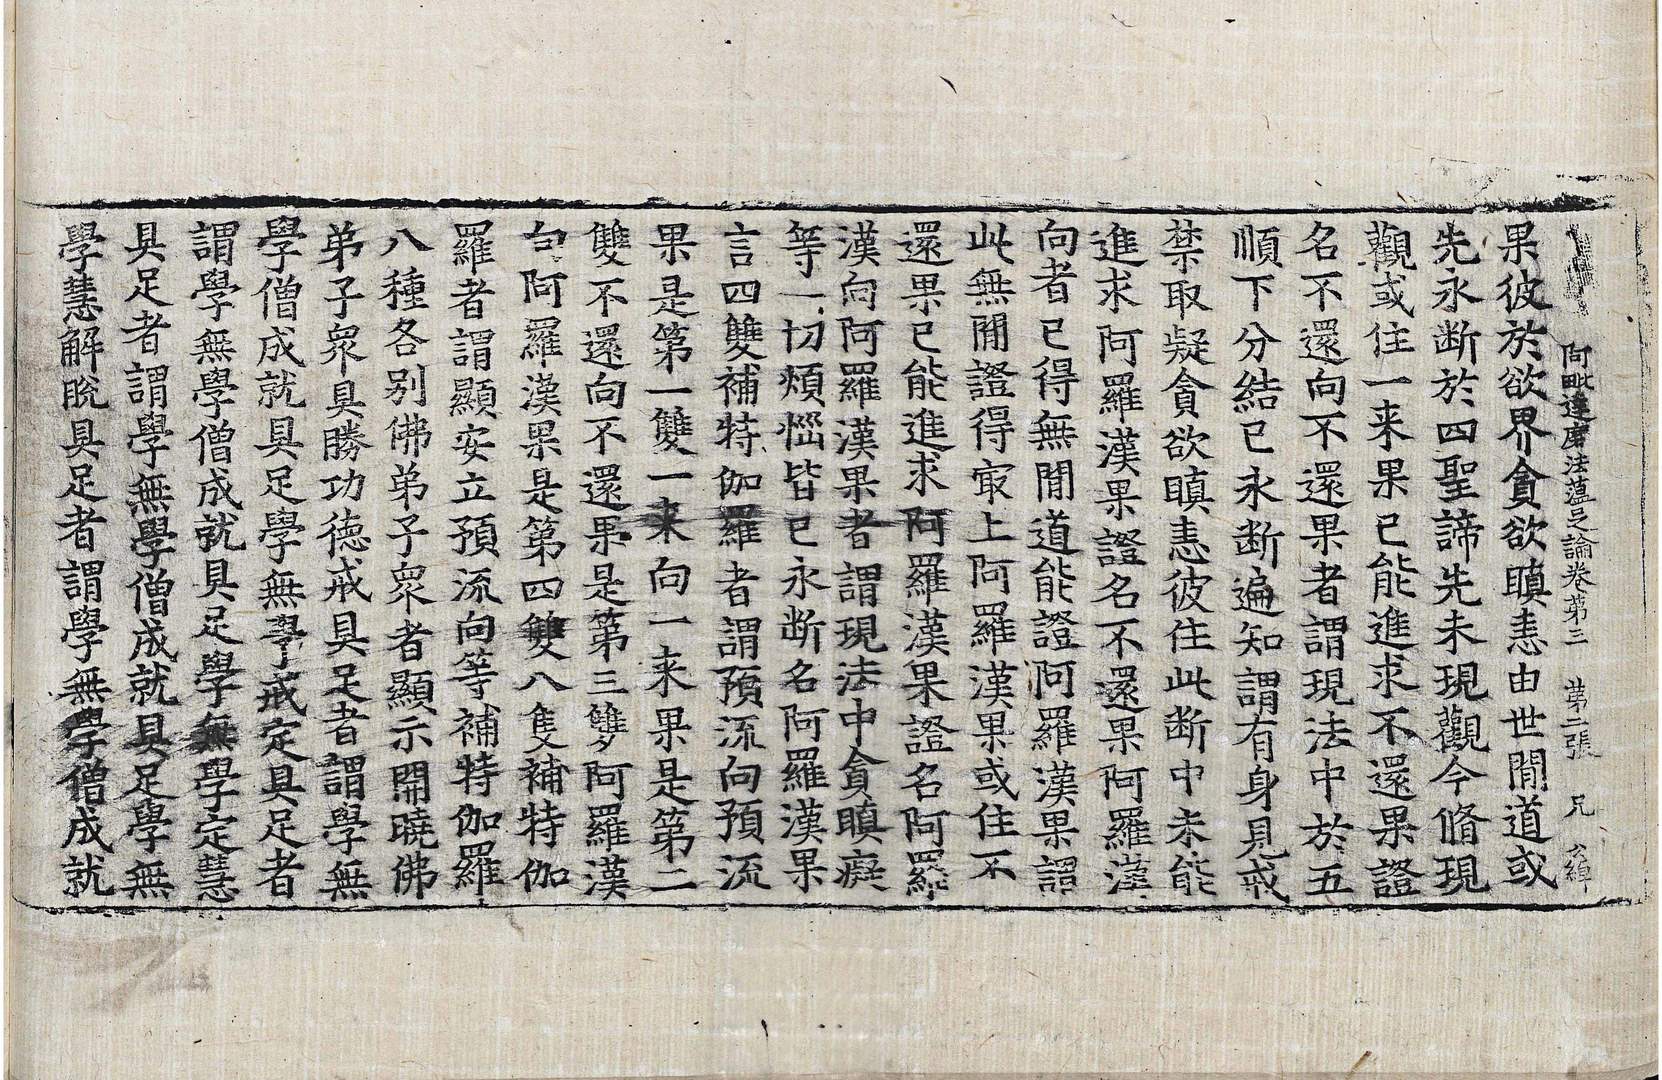 阿毗達磨法蘊足論卷第三 第二張 兄
果彼於欲界貪欲瞋恚由世間道或
先永断於四聖諦先未現觀今脩現
觀或住一来果已能進求不還果證
名不還向不還果者謂現法中於五
順下分結已永断遍知謂有身見戒
禁取疑貪欲瞋恚彼住此断中未能
進求阿羅漢果證名不還果阿羅漢
向者已得無間道能證阿羅漢果謂
此無間證得冣上阿羅漢果或住不
還果已能進求阿羅漢果證名阿羅
漢向阿羅漢果者謂現法中貪瞋癡
等一切煩惱皆已永断名阿羅漢果
言四雙補特伽羅者謂預流向預流
果是第一雙一来向一来果是第二
雙不還向不還果是第三雙阿羅漢
向阿羅漢果是第四雙八隻補特伽
羅者謂顯安立預流向等補特伽羅
八種各别佛弟子衆者顯示開曉佛
弟子衆具勝功德戒具足者謂學無
學僧成就具足學無學戒定具足者
謂學無學僧成就具足學無學定慧
具足者謂學無學僧成就具足學無
學慧解脫具足者謂學無學僧成就